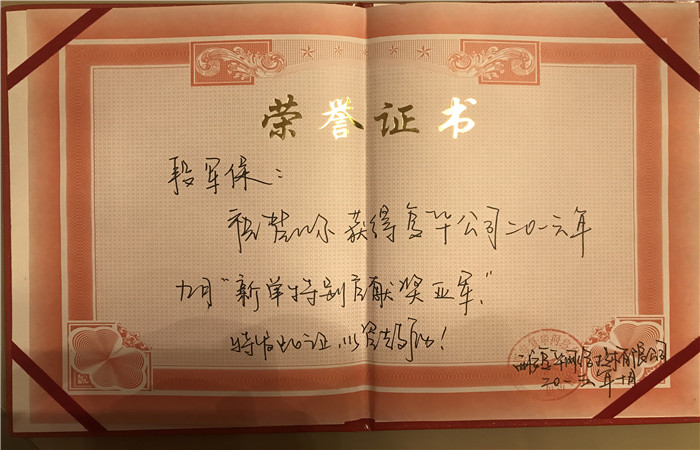 荣誉证书
段军保：
祝贺你获得复华公司二〇一六年
九月“新单特别贡献奖亚军”。
特发此证，以资鼓励！
有限公司
二〇一六年十月